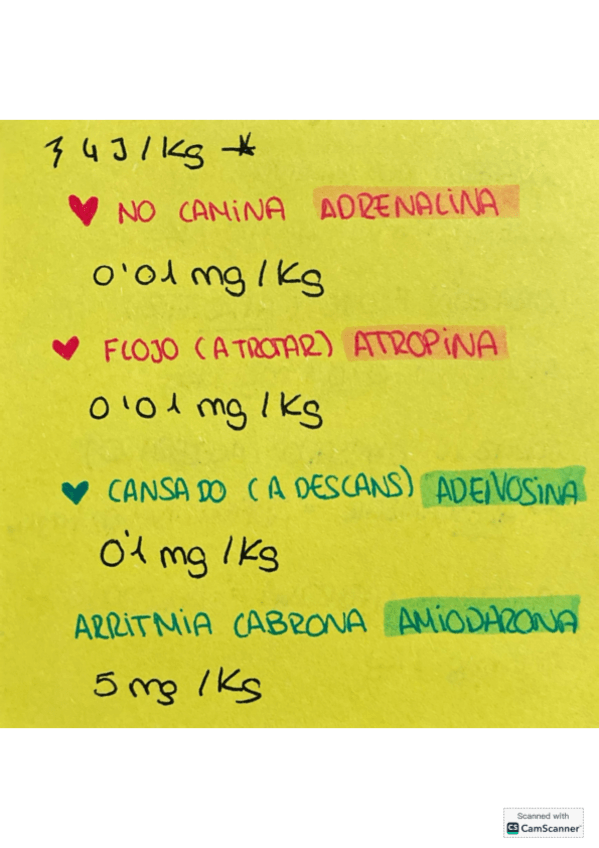 4 J / Kg *
♥ NO CAMINA ADRENALINA
0'01 mg / Kg
♥ FLOJO ( A TROTAR ) ATROPINA
0'01 mg / Kg
♥ CANSADO ( A DESCANS ) ADENOSINA
0'1 mg / Kg
ARRITMIA CABRONA AMIODARONA
5 mg / Kg
Scanned with
CS CamScanner